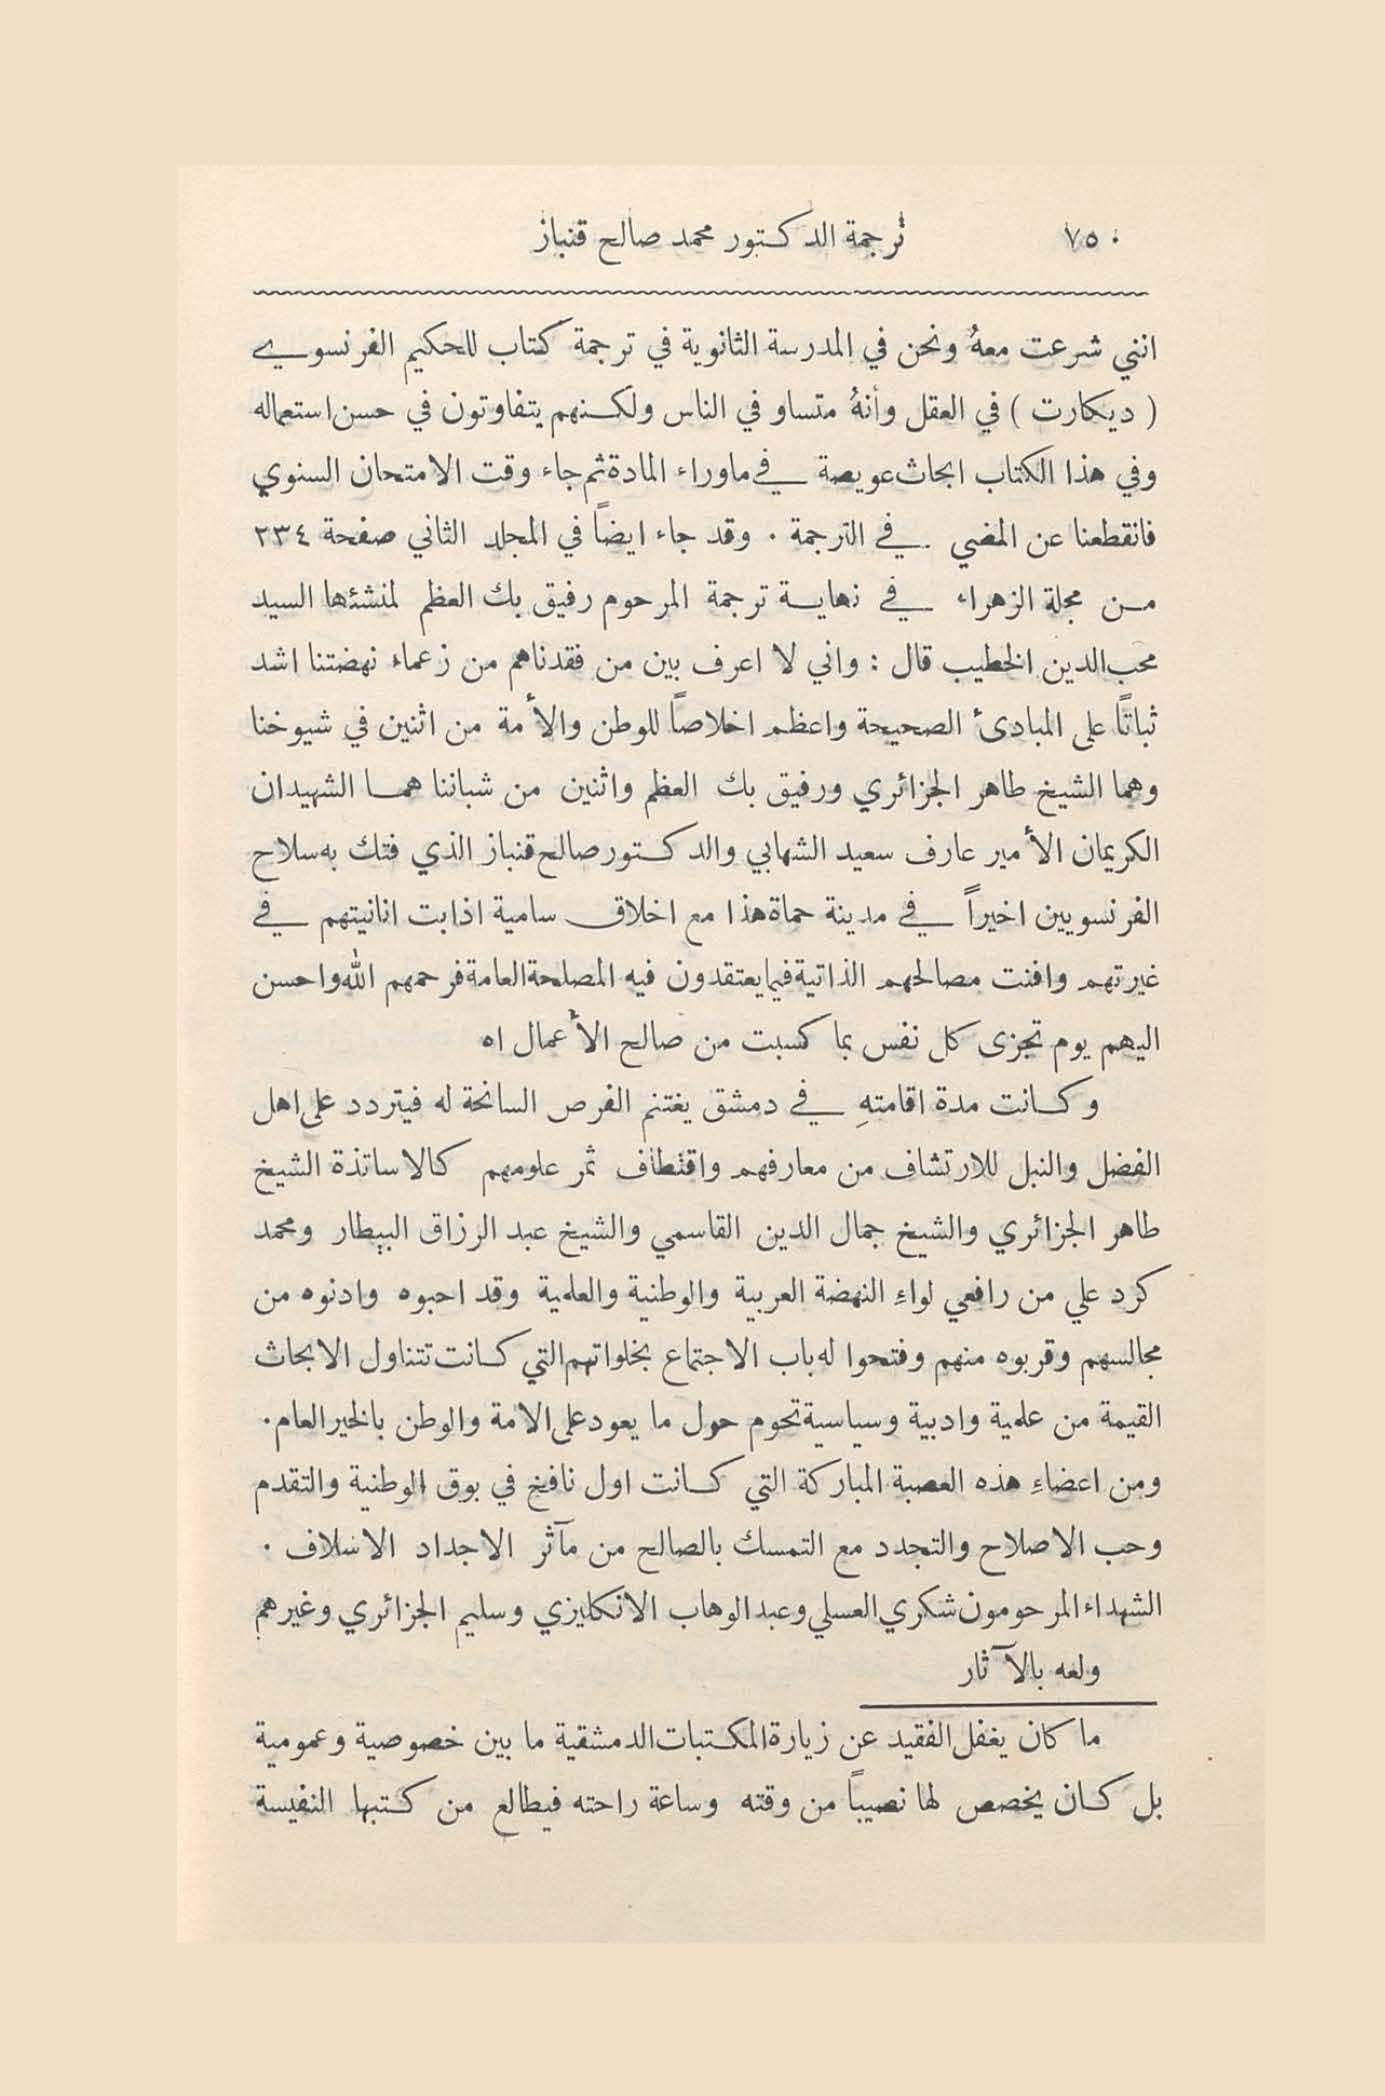 ٧٥٠ ترجمة الدكتور محمد صالح قنباز
انني شرعت معهُ ونحن في المدرسة الثانوية في ترجمة كتاب للحكيم الفرنسوي
( ديكارت ) في العقل وأنهُ متساو في الناس ولكنهم يتفاوتون في حسن استعماله
وفي هذا الكتاب ابحاث عويصة في ماوراء المادة ثم جاء وقت الامتحان السنوي
فانقطعنا عن المضي في الترجمة . وقد جاء ايضاً في المجلد الثاني صفحة ٢٣٤
من مجلة الزهراء في نهاية ترجمة المرحوم رفيق بك العظم لمنشئها السيد
محب الدين الخطيب قال : واني لا اعرف بين من فقدناهم من زعماء نهضتنا اشد
ثباتاً على المبادئ الصحيحة واعظم اخلاصاً للوطن والأمة من اثنين في شيوخنا
وهما الشيخ طاهر الجزائري ورفيق بك العظم واثنين من شباننا هما الشهيدان
الكريمان الأمير عارف سعيد الشهابي والدكتور صالح قنباز الذي فتك به سلاح
الفرنسويين اخيراً في مدينة حماة هذا مع اخلاق سامية اذابت انانيتهم في
غيرتهم وافنت مصالحهم الذاتية فيما يعتقدون فيه المصلحة العامة فرحمهم الله واحسن
اليهم يوم تجزى كل نفس بما كسبت من صالح الأعمال اه
وكانت مدة اقامتهِ في دمشق يغتنم الفرص السانحة له فيتردد على اهل
الفضل والنبل للارتشاف من معارفهم واقتطاف ثمر علومهم كالاساتذة الشيخ
طاهر الجزائري والشيخ جمال الدين القاسمي والشيخ عبد الرزاق البيطار ومحمد
كرد علي من رافعي لواءِ النهضة العربية والوطنية والعلمية وقد احبوه وادنوه من
مجالسهم وقربوه منهم وفتحوا له باب الاجتماع بخلواتهم التي كانت تتناول الابحاث
القيمة من علمية وادبية وسياسية تحوم حول ما يعود على الامة والوطن بالخير العام.
ومن اعضاءِ هذه العصبة المباركة التي كانت اول نافخ في بوق الوطنية والتقدم
وحب الاصلاح والتجدد مع التمسك بالصالح من مآثر الاجداد الاسلاف .
الشهداء المرحومون شكري العسلي وعبد الوهاب الانكليزي وسليم الجزائري وغيرهم
ولعه بالآثار
ما كان يغفل الفقيد عن زيارة المكتبات الدمشقية ما بين خصوصية وعمومية
بل كان يخصص لها نصيباً من وقته وساعة راحته فيطالع من كتبها النفيسة